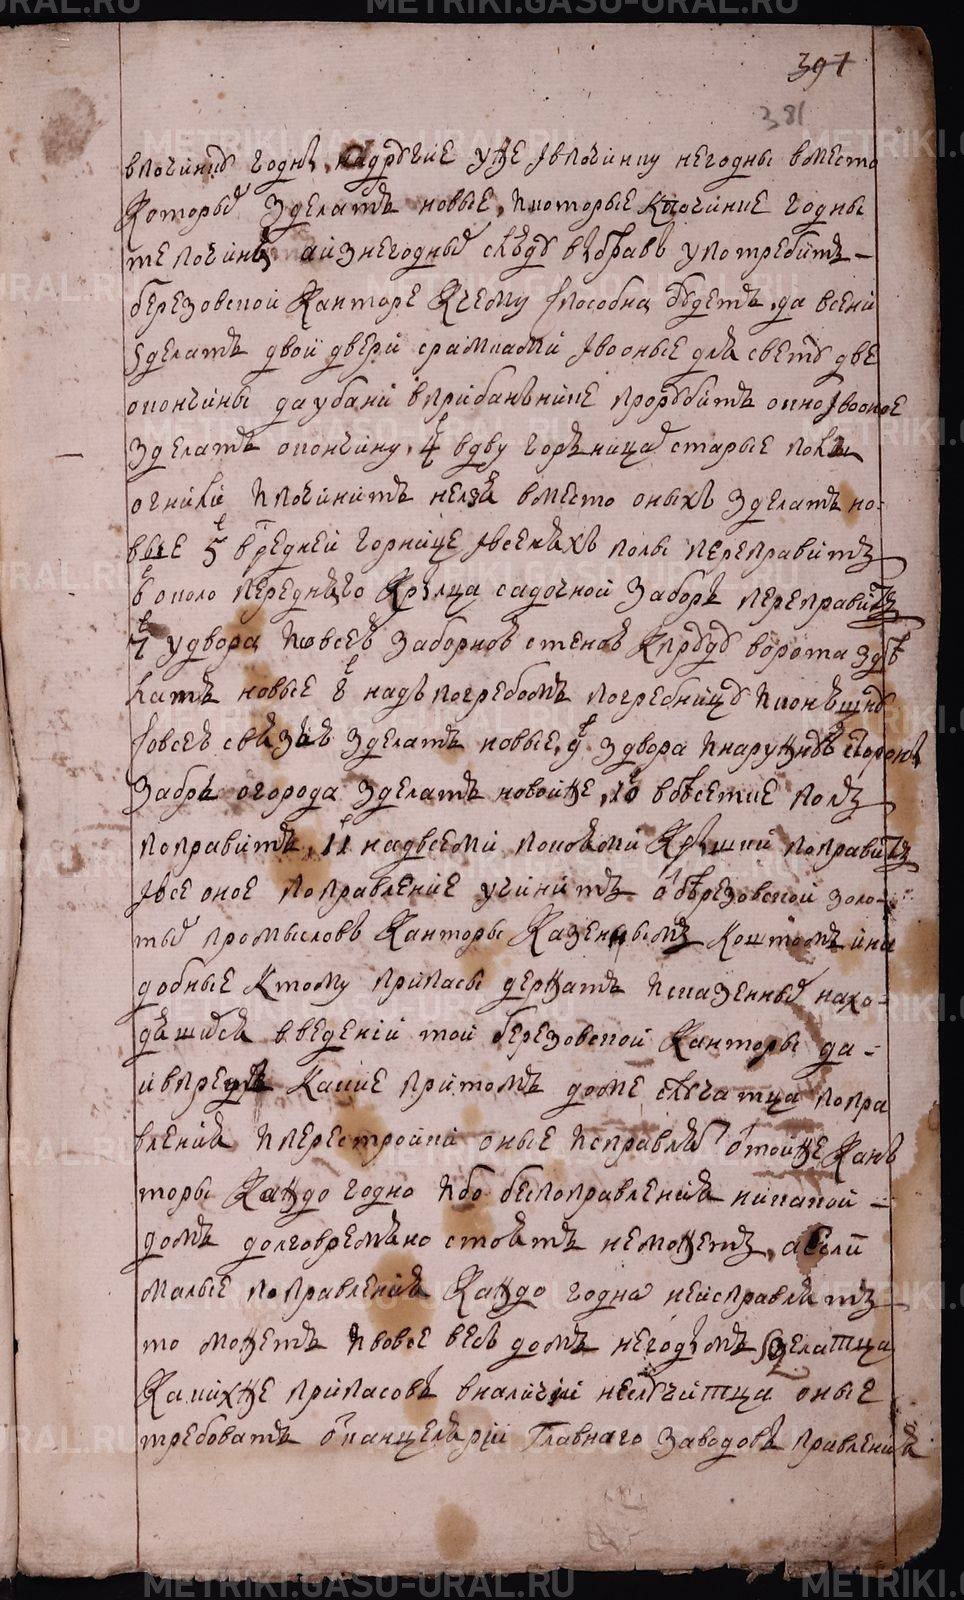 397
381
впочинкѣ годны, надрꙋгие уже ивпочинку негодны вместо
которыхъ зделать новые, икоторые кпочинке годны
те починя, аизнегодныхъ слюдꙋ выбравъ употребить
березовской канторе кчему способна бꙋдетъ, да всени
зделать двои двери срамками ивооные для светꙋ две
окончины даубани вприбаньнике прорꙋбить окно ивооное
зделать окончину, 4е вдву горьница старые
ипочинить нелзя вместо оныхъ зделать но-
вые 5е вредней горнице ивсеняхъ полы переправить
6е около переднѣго крылца садочной заборъ переправить
7е удвора совсемъ заборновъ стеновъ кпрꙋдꙋ ворота здѣ
лать новые 8е надъ погребомъ погребницꙋ иконюшню
совсемъ зделать новые, 9е здвора инаружнꙋ стороны
заборъ огорода зделать новойже, 10е полъ
поправить, 11е надвсеми покоями крышки поправить
ивсе оное поправление учинить ѿ березовской золо-
тыхъ промысловъ канторы казеннымъ коштомъ ина
добные ктому припасы держать исказенныхъ нахо-
дящихся введении той березовской канторы да-
ивпредь какие притомъ доме слꙋчатца попра
вления иперестройки оные исправлять ѿтойже кан
торы каждо годно ибо бесполравления никакой
домъ долговремянно стоять неможетъ, аесли
малые поправления каждо годна неисправлять
то можетъ ивовсе весь домъ негоднымъ зделатца
какихже припасовъ вналичии неслꙋчитца оные
требовать ѿканцелярии главнаго заводовъ правления
METRIKI.GASU-URAL.RU